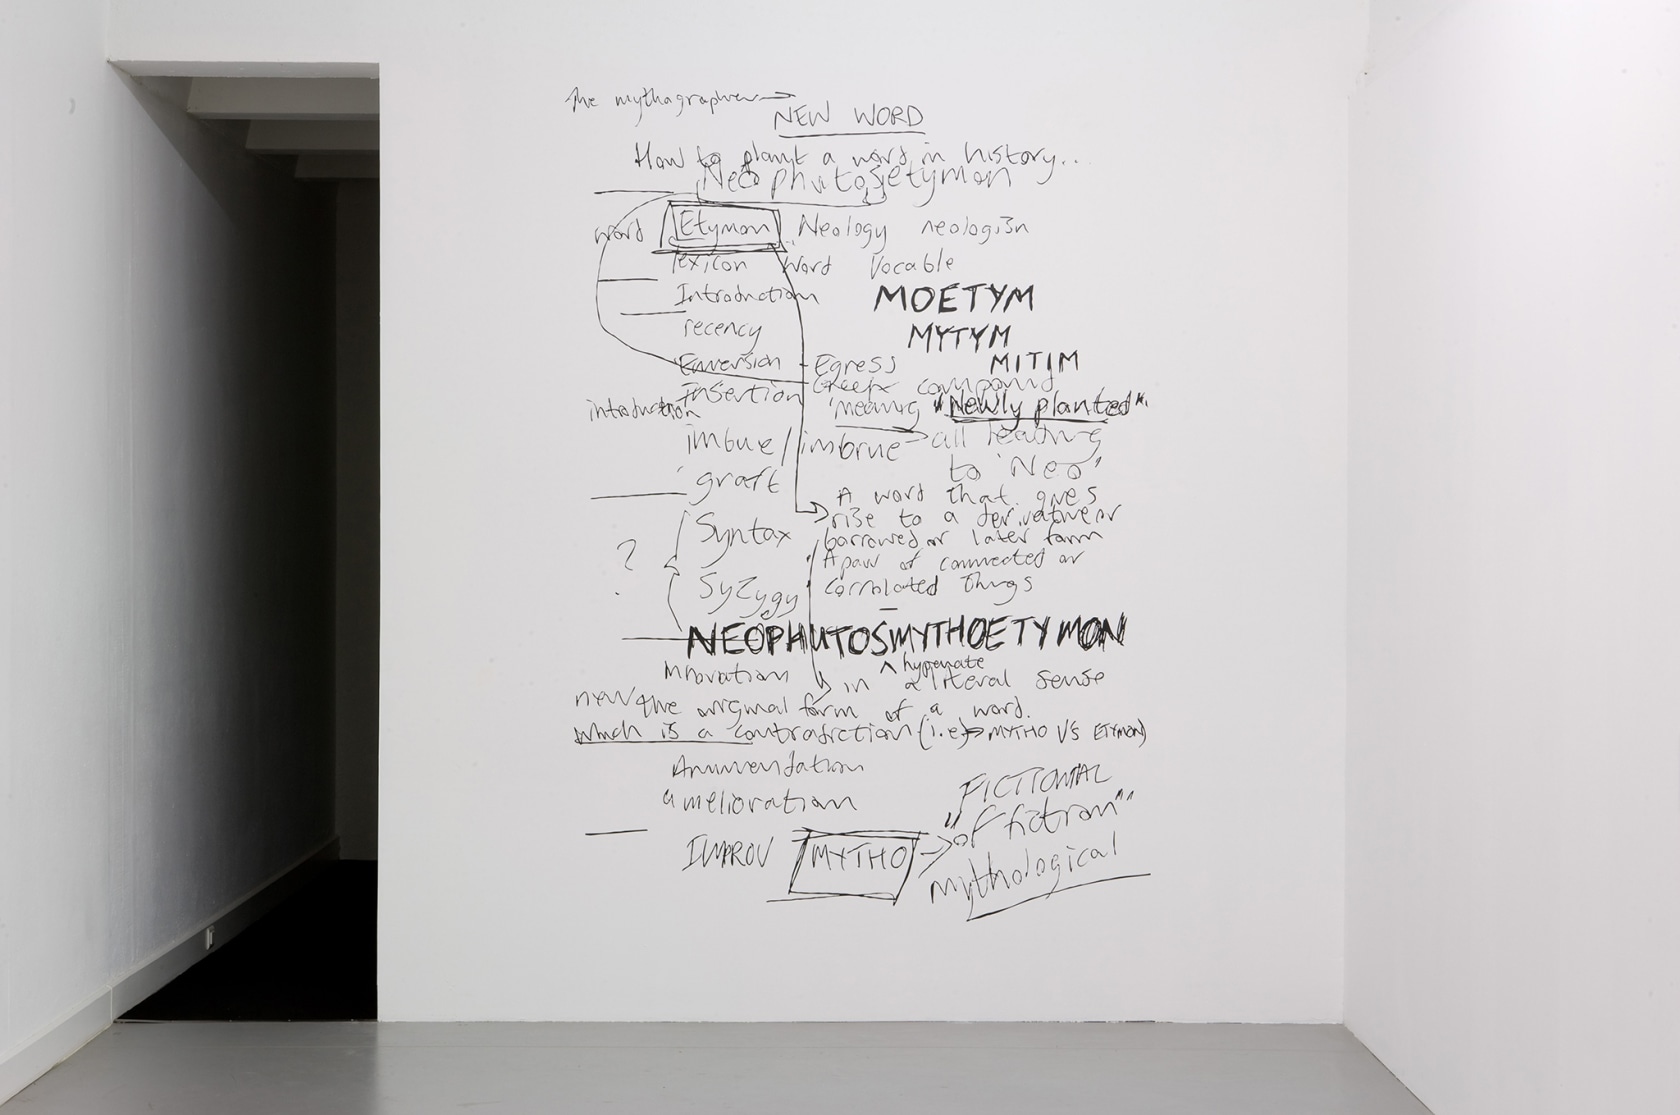 The mythagrapher →
NEW WORD
How to plant a word in history...
Neophutosetymon
word Etymon Neology neologism
lexicon Word Vocable
Introduction MOETYM
recency MYTYM
MITIM
Enversion - Egress
Insertion Greek compound
introduction meaning "Newly planted".
imbue / imbrue → all leading
to 'Neo'
graft
A word that gives
Syntax rise to a derivative or
borrowed or later form
? A pair of connected or
Syzygy corrolated things
NEOPHUTOSMYTHOETYMON
^ hypenate
Innovation in a literal sense
new the original form of a word.
which is a contradiction (i.e → MYTHO VS ETYMON)
Ammendation
amelioration
FICTIONAL
IMPROV MYTHO → "of fiction"
mythological